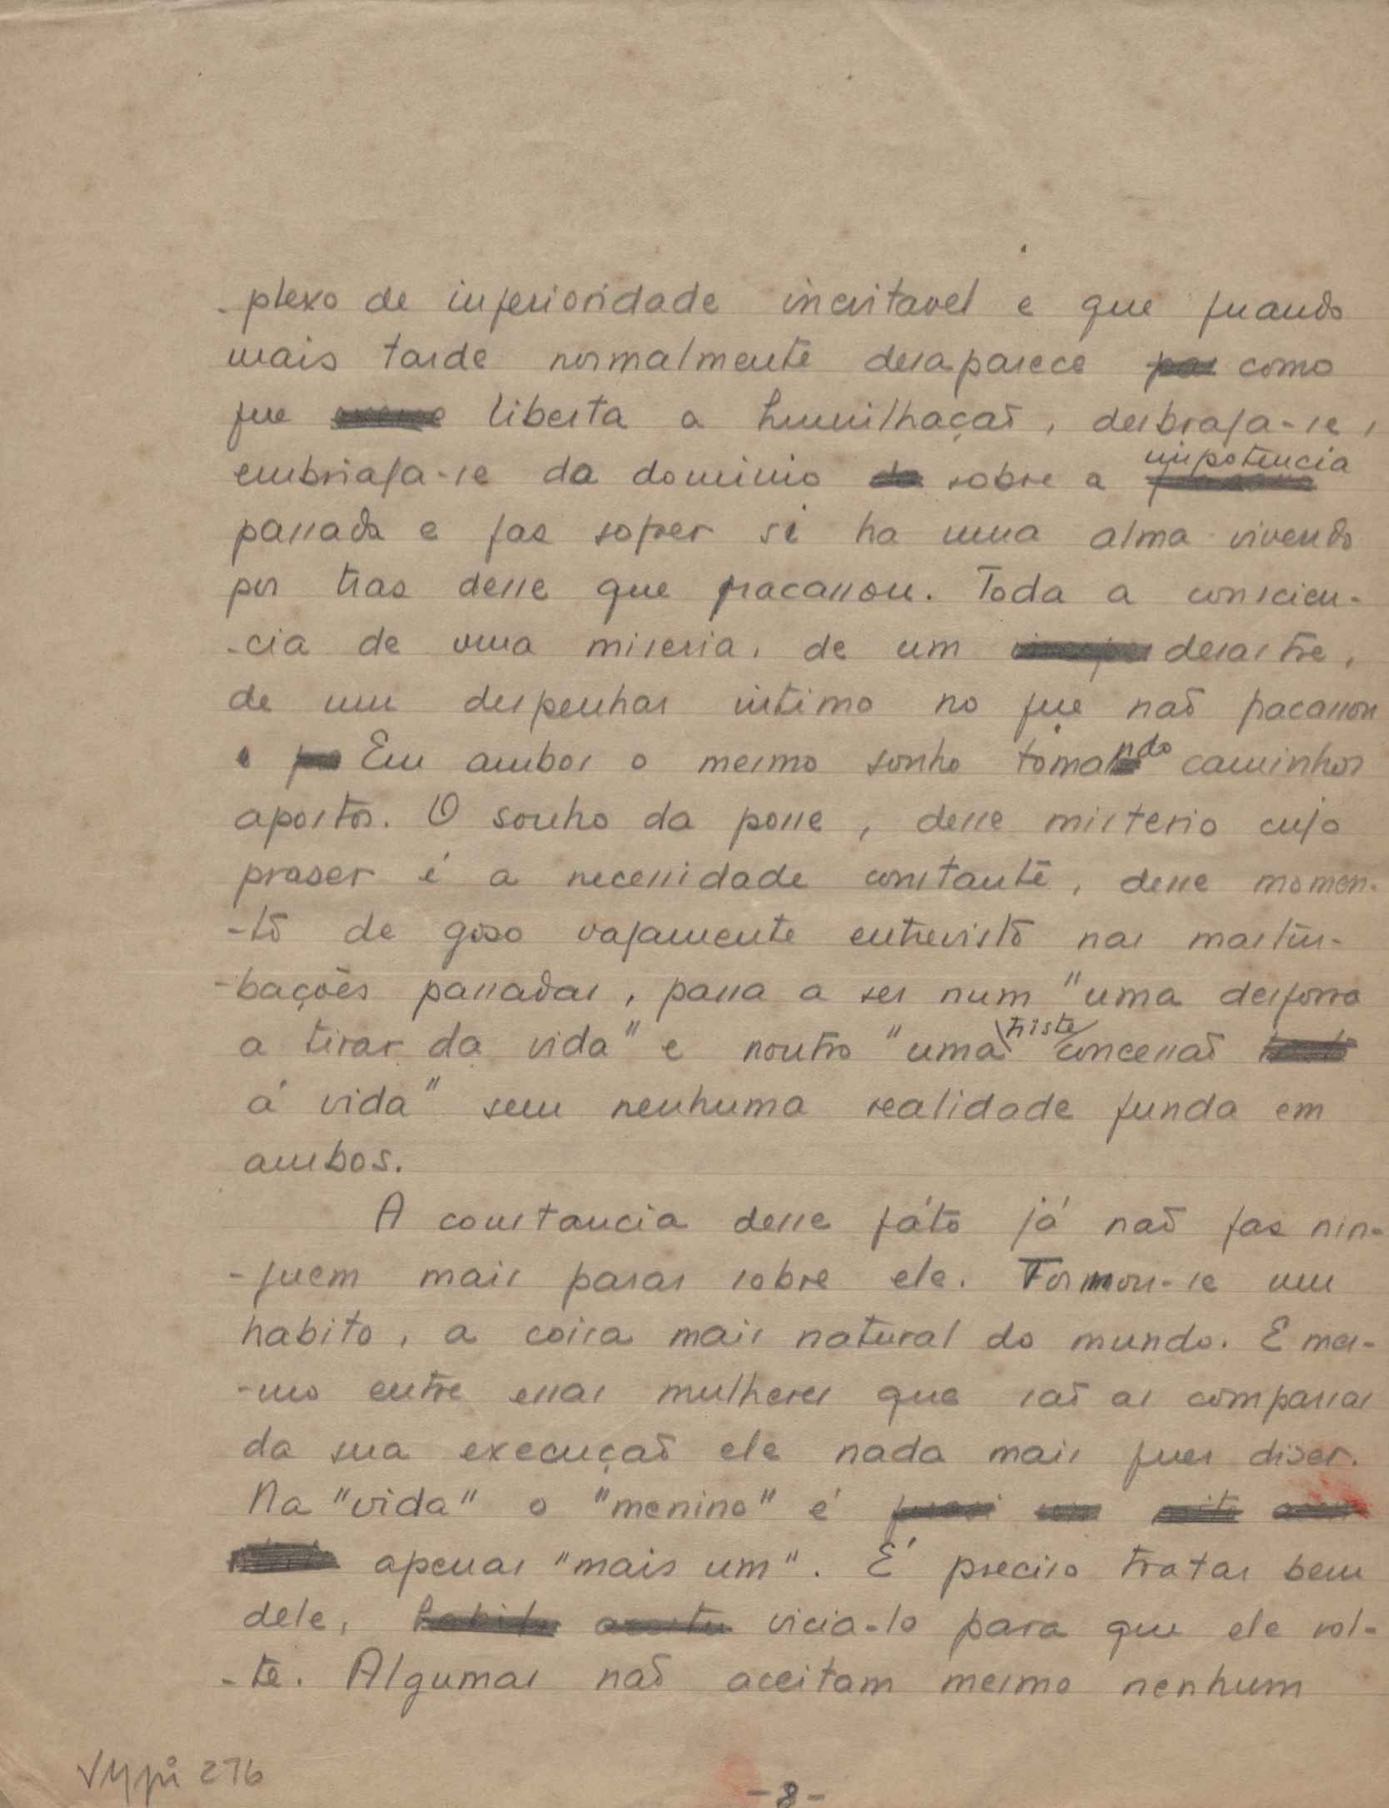 -plexo de inferioridade inevitavel e que quando
mais tarde normalmente desaparece como
que liberta a humilhação, desbrafa-se,
embriaga-se da dominio sobre a impotencia
passada e fas sofrer si ha uma alma vivendo
por tras desse que fracassou. Toda a conscien-
-cia de uma miseria, de um desastre,
de um despenhar intimo no que não fracassou
Em ambos o mesmo sonho tomando caminhos
apostos. O sonho da posse, desse misterio cujo
praser é a necessidade constante, desse momen-
-to de goso vagamente entrevisto nas mastur-
-bações passadas, passa a ser num "uma desforra
a tirar da vida" e noutro "uma triste concessão
á vida" sem nenhuma realidade funda em
ambos.
A constancia desse fáto já não fas nin-
-guem mais parar sobre ele. Formou-se um
habito, a coisa mais natural do mundo. E mes-
-mo entre essas mulheres que são as comparsas
da sua execução ele nada mais quer diser.
Na "vida" o "menino" é
apenas "mais um". É preciso tratar bem
dele, vicia-lo para que ele vol-
-te. Algumas não aceitam mesmo nenhum
276
-8-